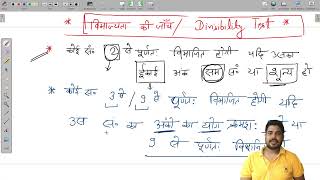 * विभाज्यता की जाँच / Divisibility Test *
* कोई सं० 2 से पूर्णतः विभाजित होगी यदि उसका
ईकाई अंक सम सं० या शून्य हो
* कोई सं० 3 से / 9 से पूर्णतः विभाजित होगी यदि
उस सं० का अंकों का योग क्रमशः 3 से या
9 से पूर्णतः विभाजित